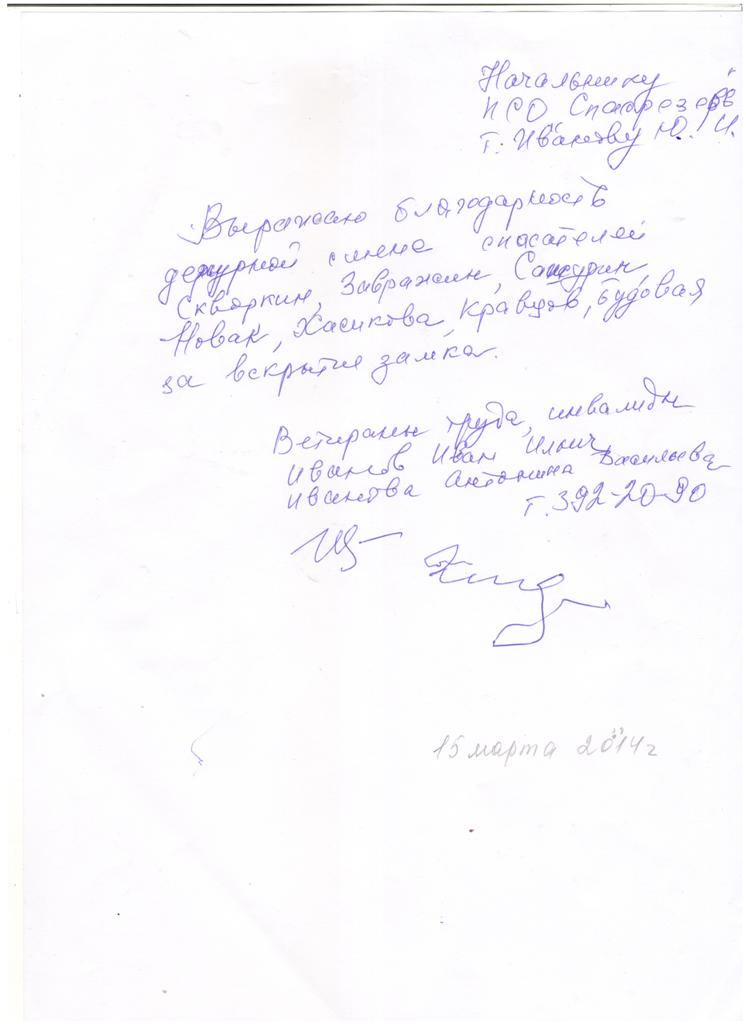 Начальнику
ПСО Спасрезерв
г. Иванову Ю. И.
Выражаю благодарность
дежурной смене спасателей
Скворкин, Завражин, Сажурин,
Новак, Хасикова, Кравцов, Будовая
за вскрытие замка.
Ветираны труда, инвалиды
Иванов Иван Ильич,
Иванова Антонина Васильевна
т. 392-20-90
15 марта 2014 г